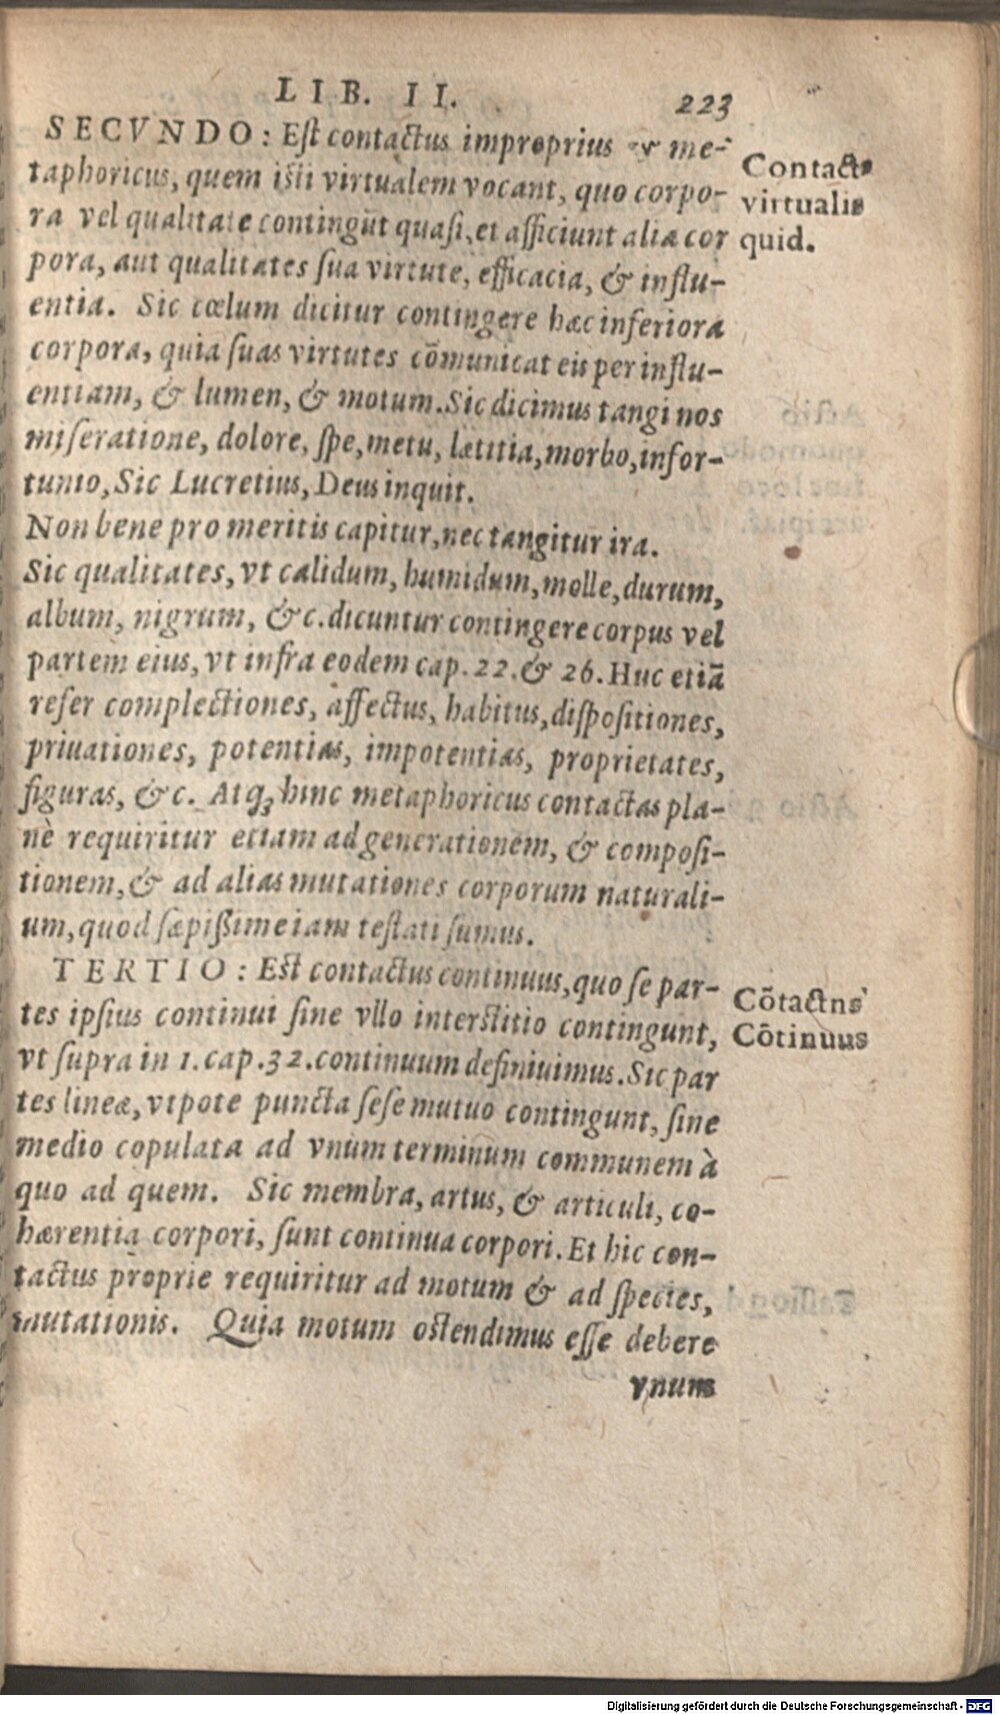 LIB. II. 223
SECVNDO: Est contactus improprius & me-
taphoricus, quem isti virtualem vocant, quo corpo-
ra vel qualitate contingūt quasi, et afficiunt alia cor
pora, aut qualitates sua virtute, efficacia, & influ-
entia. Sic cœlum dicitur contingere hæc inferiora
corpora, quia suas virtutes cōmunicat eis per influ-
entiam, & lumen, & motum. Sic dicimus tangi nos
miseratione, dolore, spe, metu, lætitia, morbo, infor-
tunio, Sic Lucretius, Deus inquit.
Non bene pro meritis capitur, nec tangitur ira.
Sic qualitates, vt calidum, humidum, molle, durum,
album, nigrum, &c. dicuntur contingere corpus vel
partem eius, vt infra eodem cap. 22. & 26. Huc etiā
refer complectiones, affectus, habitus, dispositiones,
priuationes, potentias, impotentias, proprietates,
figuras, &c. Atq; hinc metaphoricus contactas pla-
nè requiritur etiam ad generationem, & composi-
tionem, & ad alias mutationes corporum naturali-
um, quod sæpissime iam testati sumus.
TERTIO: Est contactus continuus, quo se par-
tes ipsius continui sine vllo interstitio contingunt,
vt supra in 1. cap. 32. continuum definiuimus. Sic par
tes lineæ, vtpote puncta sese mutuo contingunt, sine
medio copulata ad vnum terminum communem à
quo ad quem. Sic membra, artus, & articuli, co-
hærentia corpori, sunt continua corpori. Et hic con-
tactus proprie requiritur ad motum & ad species,
mutationis. Quia motum ostendimus esse debere
vnum
Contactꝰ
virtualis
quid.
Cōtactns
Cōtinuus
Digitalisierung gefördert durch die Deutsche Forschungsgemeinschaft - DFG